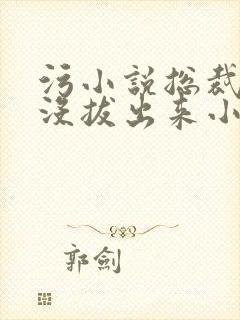 污小说总裁
没拔出来小
郭劍